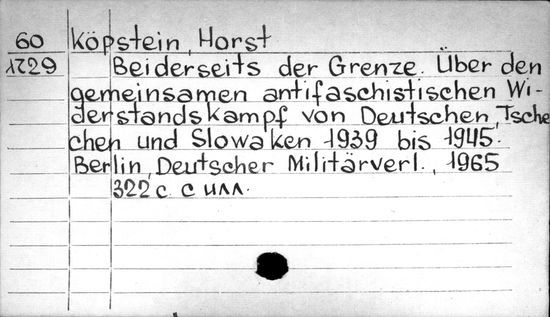 60 Köpstein, Horst
1729 Beiderseits der Grenze. Über den
gemeinsamen antifaschistischen Wi-
derstandskampf von Deutschen, Tsche
chen und Slowaken 1939 bis 1945.
Berlin, Deutscher Militärverl., 1965
322 с. с илл.